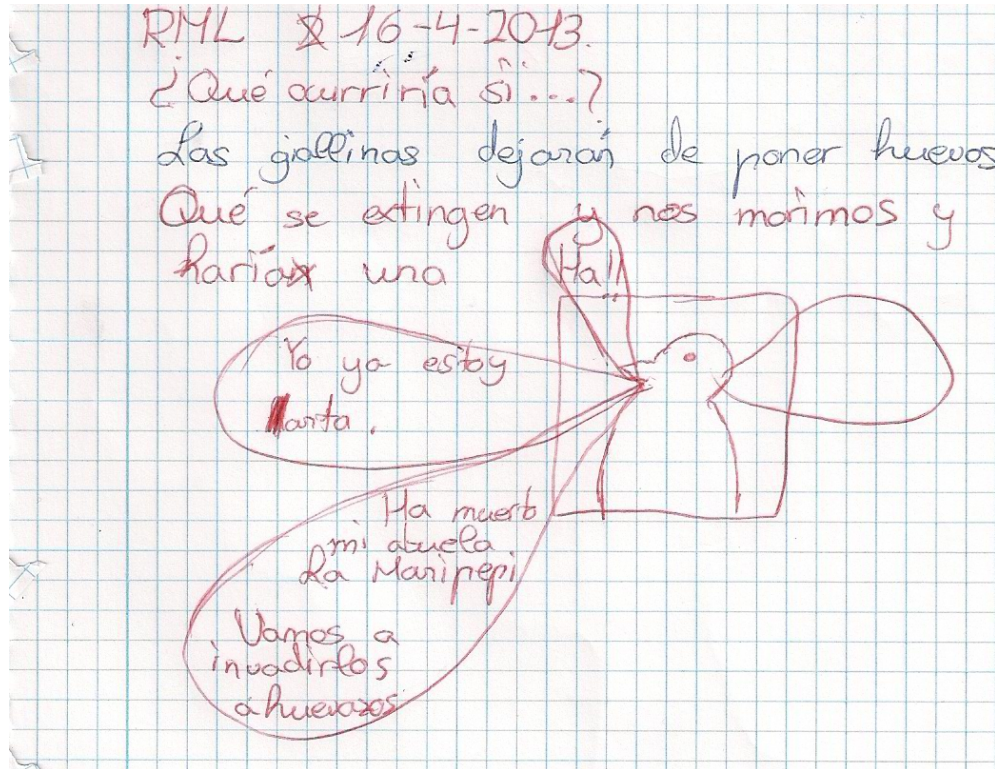 RML 16-4-2013.
¿Qué ocurriría si...?
Las gallinas dejarán de poner huevos
Qué se extingen y nos morimos y
haría una
Ha!!
Yo ya estoy
arta.
Ha muerto
mi abuela
La Maripepi
Vamos a
invadirlos
a huevazos